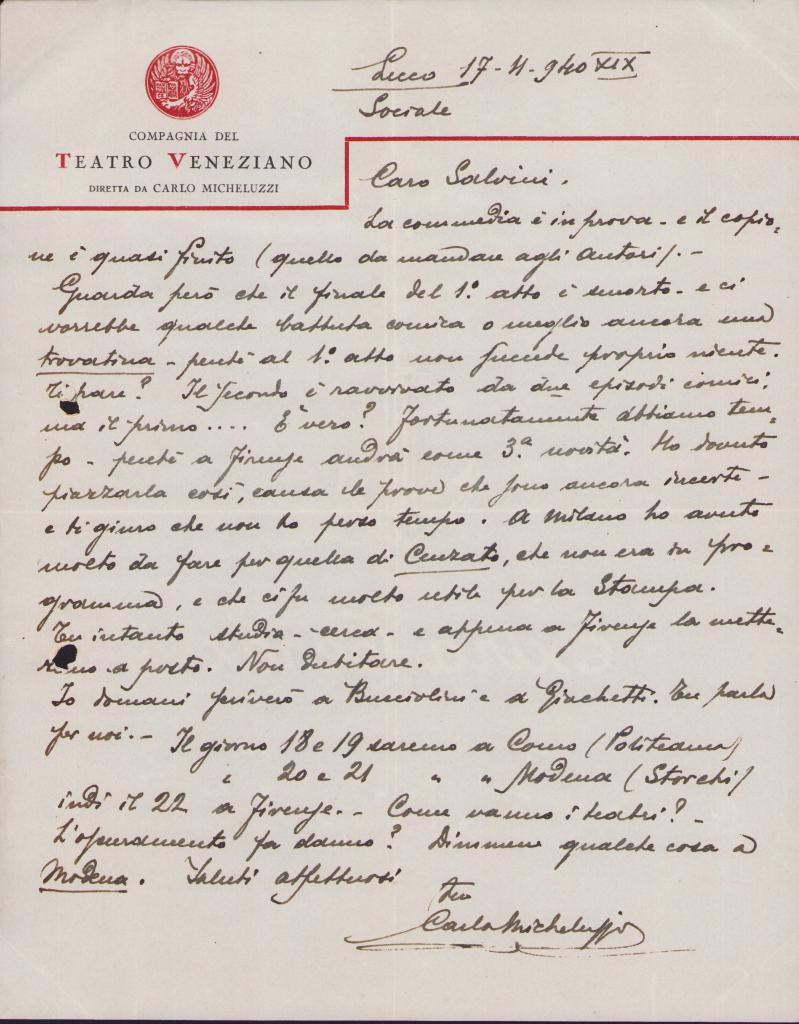 Lecco 17-11-940 XIX
Sociale
COMPAGNIA DEL
TEATRO VENEZIANO
DIRETTA DA CARLO MICHELUZZI
Caro Salvini.
La commedia è in prova - e il copio=
ne è quasi finito (quello da mandare agli autori). -
Guarda però che il finale del 1º atto è smorto - e ci
vorrebbe qualche battuta comica o meglio ancora una
trovatina - perchè al 1º atto non succede proprio niente.
Ti pare? Il secondo è ravvivato da due episodi comici,
ma il primo .... È vero? Fortunatamente abbiamo tem=
po - perchè a Firenze andrà come 3ª novità. Ho dovuto
piazzarla così, causa le prove che sono ancora incerte -
e ti giuro che non ho perso tempo. A Milano ho avuto
molto da fare per quella di Cenzato, che non era in pro=
gramma, e che ci fu molto utile per la Stampa.
Tu intanto studia - cerca - e appena a Firenze la mette=
remo a posto. Non dubitare.
Io domani scriverò a Bucciolini e a Giachetti. Tu parla
per noi. - Il giorno 18 e 19 saremo a Como (Politeama)
" 20 e 21 " " Modena (Storchi)
indi il 22 a Firenze. - Come vanno i teatri? -
L'oscuramento fa danno? Dimmene qualche cosa a
Modena. Saluti affettuosi
tuo
Carlo Micheluzzi